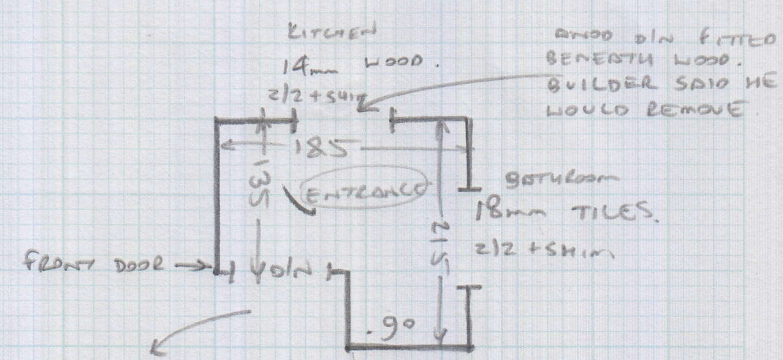 KITCHEN
14mm WOOD.
2/2 + SHIM
D/N FITTED
BENEATH WOOD.
BUILDER SAID HE
WOULD REMOVE
185
135
ENTRANCE
215
BATHROOM
18mm TILES.
2/2 + SHIM
FRONT DOOR
D/N
.90